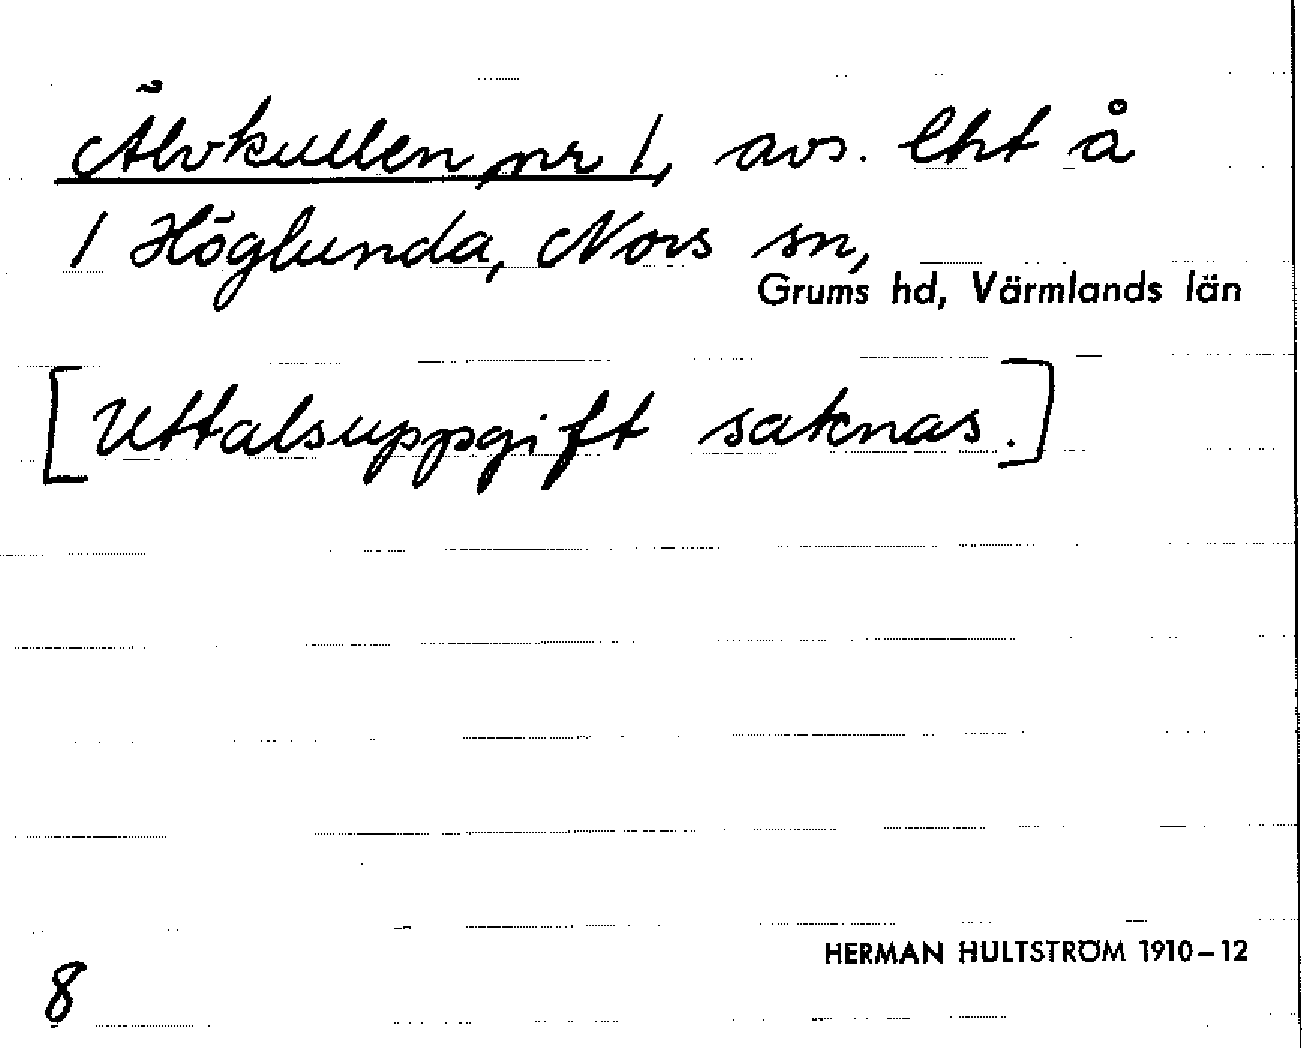 Älvkullen nr 1, avs. lht å
1 Höglunda, Nors sn,
Grums hd, Värmlands län
[Uttalsuppgift saknas.]
HERMAN HULTSTRÖM 1910–12
8